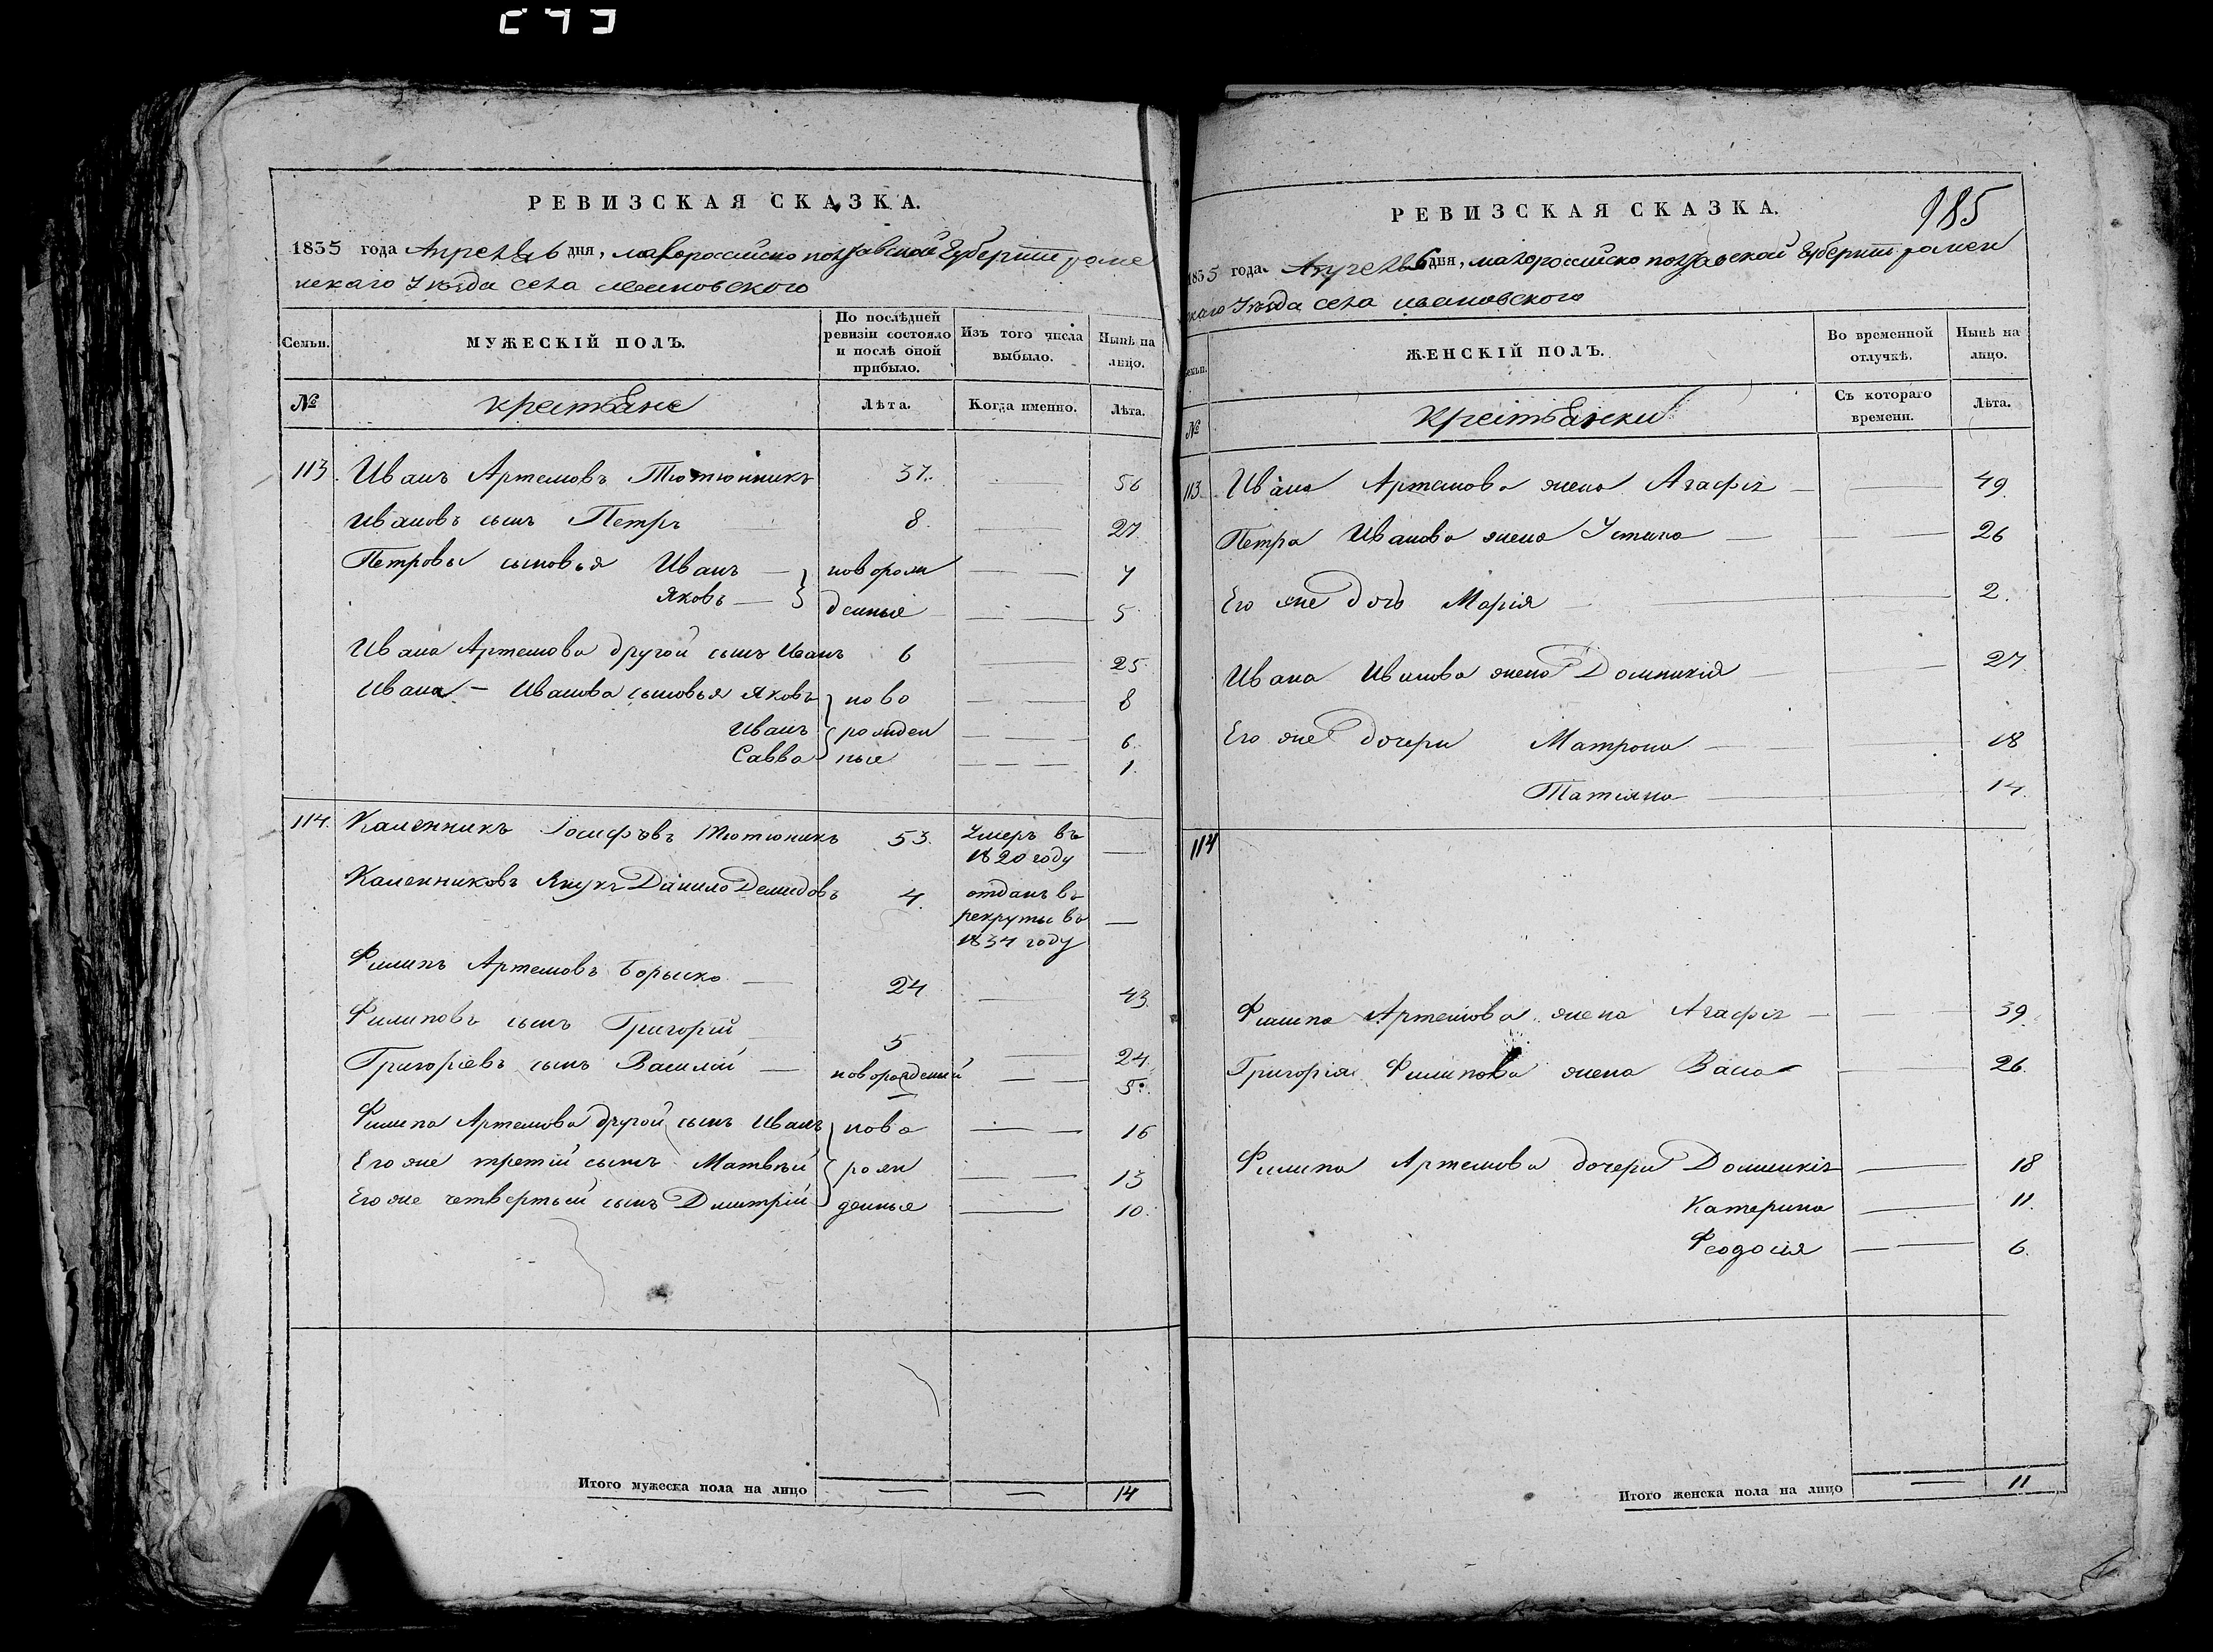 985
РЕВИЗСКАЯ СКАЗКА.
1835 года Апреля 6 дня, малороссийско полтавской Губернии роме
нскаго Уѣзда села ивановского
Семьи.
МУЖЕСКІЙ ПОЛЪ.
По послѣдней ревизіи состояло и послѣ оной прибыло.
Изъ того числа выбыло.
Нынѣ на лицо.
№
крестьяне
Лѣта.
Когда именно.
Лѣта.
113. Иванъ Артемовъ Тютюнникъ 37. 56
Ивановъ сынъ Петръ 8. 27
Петровы сыновья Иванъ новорож 7
Яковъ денные 5
Ивана Артемова другой сынъ Иванъ 6 25
Ивана Иванова сыновья Яковъ ново 8
Иванъ рожден 6.
Савва ные 1.
114. Каленникъ Іосифовъ Тютюникъ 53. Умеръ въ
1820 году
Каленниковъ внукъ Данило Демидовъ 4. отданъ въ
рекруты въ
1834 году
Филипъ Артемовъ Борыско 24 43.
Филиповъ сынъ Григорій 5 24.
Григоріевъ сынъ Василій новорожденный 5.
Филипа Артемова другой сынъ Иванъ ново 16
Его же третій сынъ Матвѣй рож 13
Его же четвертый сынъ Дмитрій денные 10.
Итого мужеска пола на лицо 14
РЕВИЗСКАЯ СКАЗКА.
1835 года Апреля 6 дня, малороссийско полтавской Губернии ромен
скаго Уѣзда села ивановского
Семьи.
ЖЕНСКІЙ ПОЛЪ.
Во временной отлучкѣ.
Нынѣ на лицо.
№
крестьянки
Съ котораго времени.
Лѣта.
113. Ивана Артемова жена Агафія 49.
Петра Иванова жена Устина 26
Его же дочь Марія 2.
Ивана Иванова жена Домникія 27
Его же дочери Матрона 18
Татіяна 14.
114
Филипа Артемова жена Агафія 39.
Григорія Филипова жена Васа 26.
Филипа Артемова дочери Домникія 18
Катерина 11.
Феодосія 6.
Итого женска пола на лицо 11